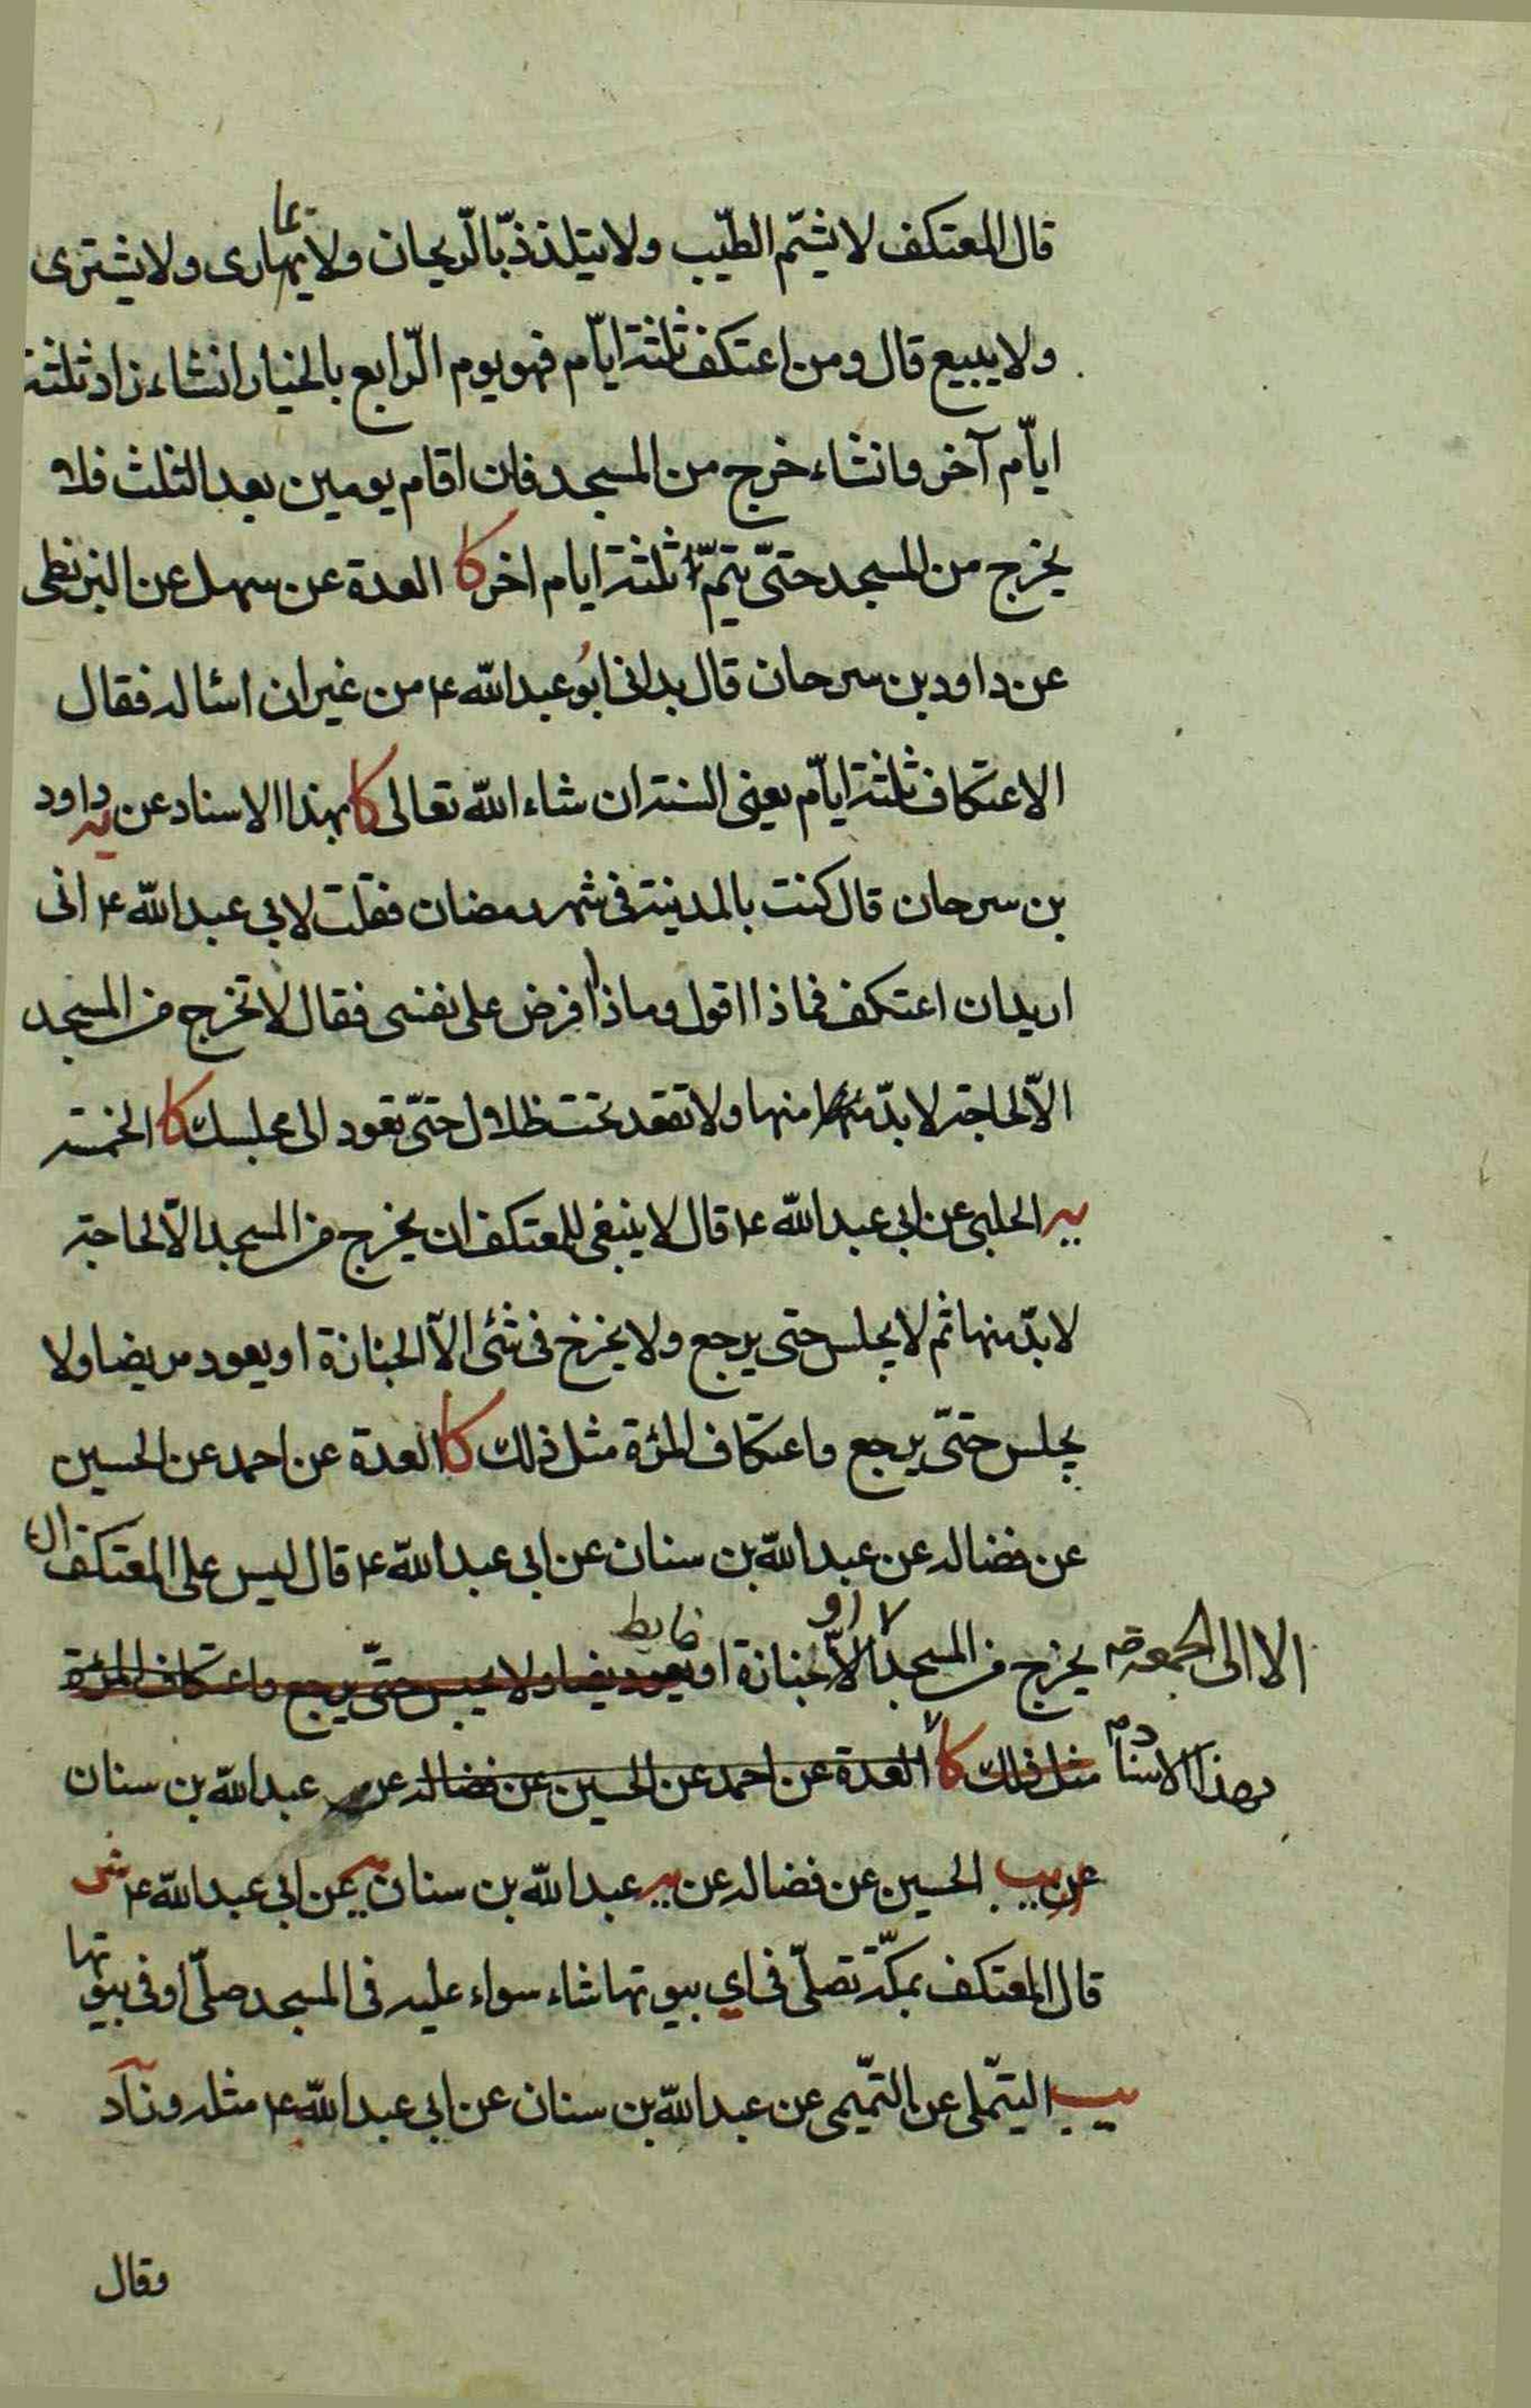 قال المعتكف لا يشتم الطيّب ولا يتلذذ بالرّيحان ولا يمارى ولا يشترى
ولا يبيع قال ومن اعتكف ثلثة ايّام فهو يوم الرّابع بالخيار انشاء زاد ثلثة
ايّام آخر وانشاء خرج من المسجد فان اقام يومين بعد الثلث فلا
يخرج من المسجد حتّى يتمّ ثلثة ايام اخر كا العدة عن سهل عن البزنطى
عن داود بن سرحان قال بدانى ابو عبد اللّه ع من غير ان اسئاله فقال
الاعتكاف ثلثة ايّام يعنى السنة ان شاء اللّه تعالى كا بهذا الاسناد عن داود
يه
بن سرحان قال كنت بالمدينة فى شهر رمضان فقلت لابى عبد اللّه ع انى
اريد ان اعتكف فماذا اقول وماذا افرض على نفسى فقال لا تخرج من المسجد
الاّ لحاجة لا بدّ منها ولا تقعد تحت ظلال حتّى تعود الى مجلسك كا الخمسة
يه الحلبى عن ابى عبد اللّه ع قال لا ينبغى للمعتكف ان يخرج من المسجد الاّ لحاجة
لا بدّ منها ثم لا يجلس حتى يرجع ولا يخرج فى شئ الاّ الجنازة او يعود مريضا ولا
يجلس حتّى يرجع واعتكاف المرءة مثل ذلك كا العدة عن احمد عن الحسين
عن فضاله عن عبد اللّه بن سنان عن ابى عبد اللّه ع قال ليس على المعتكف ان
يخرج من المسجد الاّ جنازة او يعود مريضا ولا يجلس حتّى يرجع واعتكاف المرءة
الا الى الجمعة
مثل ذلك كا العدة عن احمد عن الحسين عن فضاله عن عبد اللّه بن سنان
بهذا الاسناد
عن يب الحسين عن فضاله عن يه عبد اللّه بن سنان عن ابى عبد اللّه ع
قال المعتكف بمكّة يصلّى فى اي بيوتها شاء سواء عليه فى المسجد صلّى او فى بيوتها
يب التيّملى عن التّميمى عن عبد اللّه بن سنان عن ابى عبد اللّه ع مثله وزاد
وقال